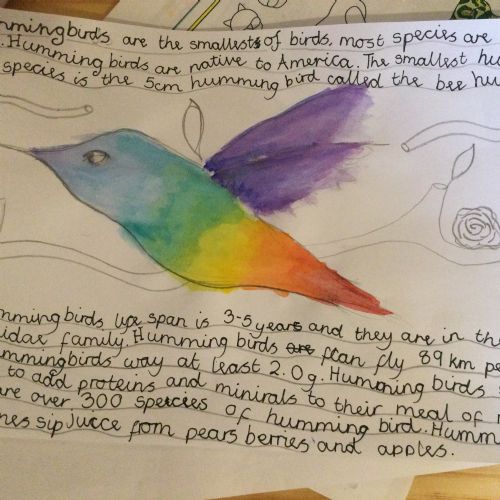 mmingbirds are the smallests of birds, most species are
. Humming birds are native to America. The smallest hu
species is the 5cm humming bird called the bee hu
mming birds, lye span is 3-5 years and they are in th
idae family. Humming birds are fian fly 89 km pe
mmingbirds way at least 2.0g. Humming birds
to add proteins and minirals to their meal of
are over 300 spercies of humming bird. Humm
nes sip jucce from pears berries and apples.